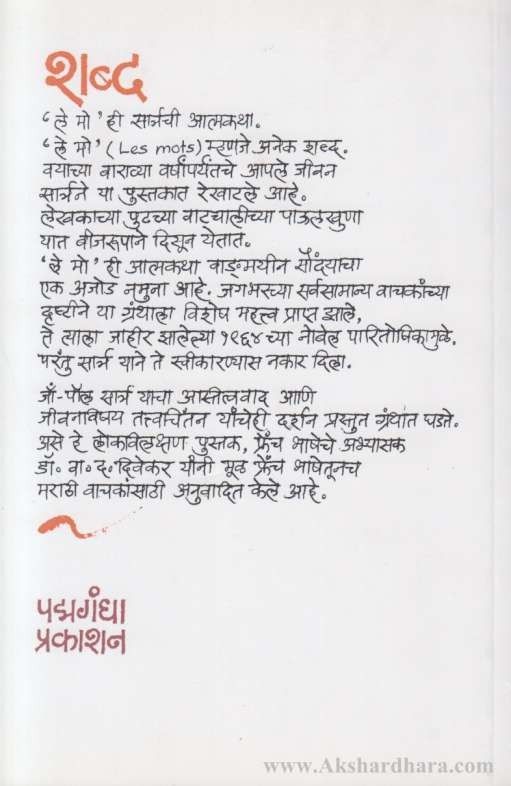 शब्द
‘ले मो’ ही सार्त्रची आत्मकथा.
‘ले मो’ (Les mots) म्हणजे अनेक शब्द.
वयाच्या बाराव्या वर्षापर्यंतचे आपले जीवन
सार्त्रने या पुस्तकात रेखाटले आहे.
लेखकाच्या पुढच्या वाटचालीच्या पाऊलखुणा
यात बीजरूपाने दिसून येतात.
‘ले मो’ ही आत्मकथा वाङ्मयीन सौंदर्याचा
एक अजोड नमुना आहे. जगभरच्या सर्वसामान्य वाचकांच्या
दृष्टीने या ग्रंथाला विशेष महत्त्व प्राप्त झाले,
ते त्याला जाहीर झालेल्या १९६४ च्या नोबेल पारितोषिकामुळे.
परंतु सार्त्र याने ते स्वीकारण्यास नकार दिला.
जाँ-पॉल सार्त्र याचा अस्तित्ववाद आणि
जीवनाविषय तत्त्वचिंतन यांचेही दर्शन प्रस्तुत ग्रंथात घडते.
असे हे लोकविलक्षण पुस्तक, फ्रेंच भाषेचे अभ्यासक
डॉ. वा. द. दिवेकर यांनी मूळ फ्रेंच भाषेतूनच
मराठी वाचकांसाठी अनुवादित केले आहे.
पद्मगंधा
प्रकाशन
www.Akshardhara.com